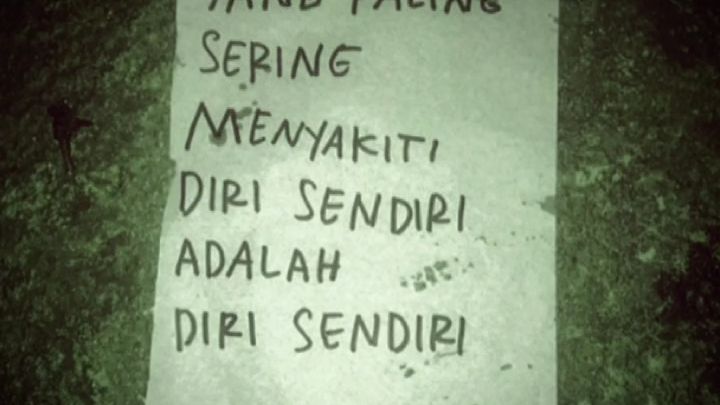 YANG PALING
SERING
MENYAKITI
DIRI SENDIRI
ADALAH
DIRI SENDIRI